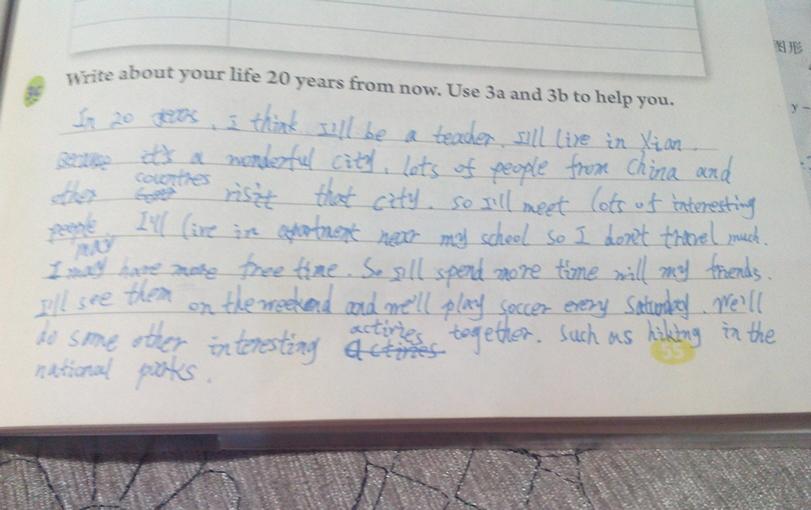 图形
3c
Write about your life 20 years from now. Use 3a and 3b to help you.
In 20 years, I think I'll be a teacher. I'll live in Xian.
Because it's a wonderful city, lots of people from China and
other countries visit that city. so I'll meet lots of interesting
people. I'll live in apartment near my school so I don't travel much.
may
I may have more free time. So I'll spend more time will my friends.
I'll see them on the weekend and we'll play soccer every Saturday. We'll
do some other interesting activies together. Such as hiking in the
national parks.
55
y